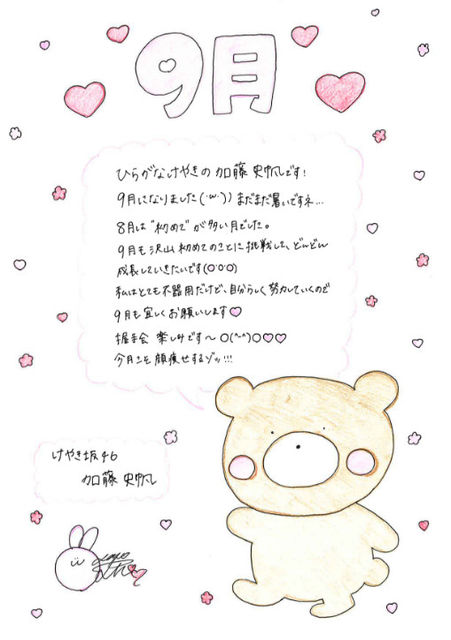 9月
ひらがなけやきの加藤 史帆です!
9月になりました(·ω·)) まだまだ暑いですネ...
8月は"初めて"が多い月でした。
9月も沢山初めてのことに挑戦した、どんどん
成長していきたいです(○'○'○)
私はとても不器用だけど、自分らしく努力していくので
9月も宜しくお願いします♡
握手会 楽しみです〜 ○(^-^)○♡♡
今月こそ顔痩せするゾッ!!!
けやき坂46
加藤 史帆